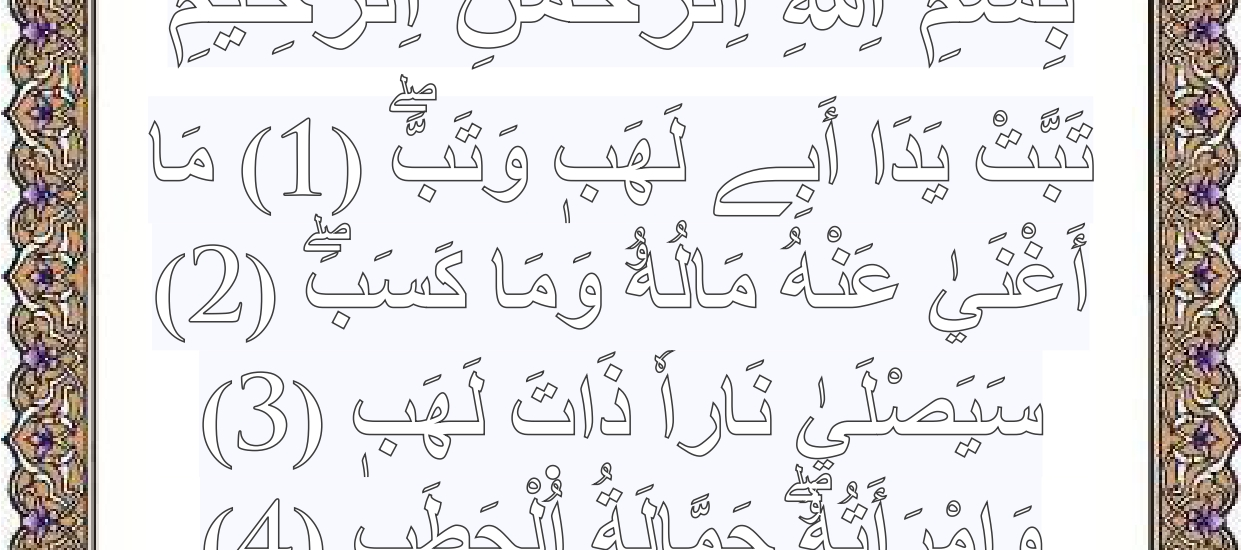 بِسْمِ اِ۬للَّهِ اِ۬لرَّحْمَٰنِ اِ۬لرَّحِيمِ
تَبَّتْ يَدَا أَبِے لَهَبٖ وَتَبَّۖ (1) مَا
أَغْنَيٰ عَنْهُ مَالُهُۥ وَمَا كَسَبَۖ (2)
سَيَصْلَيٰ نَاراٗ ذَاتَ لَهَبٖ (3)
وَامْرَأَتُهُۥۖ حَمَّالَةُ اُ۬لْحَطَبِ (4)